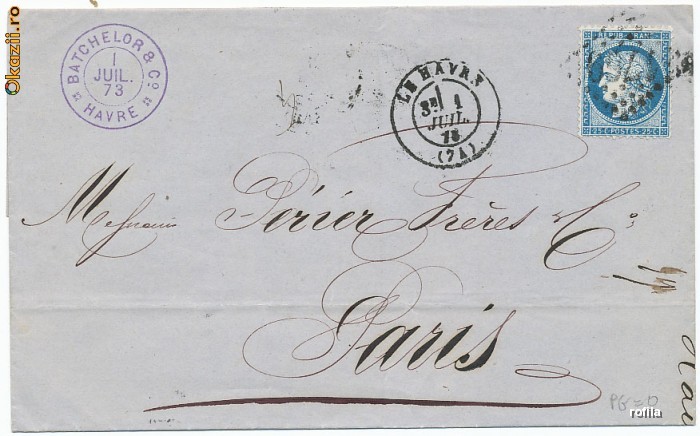 Okazii.ro
BATCHELOR & Cº
1
JUIL.
73
HAVRE
LE HAVRE
3E 1
JUIL.
73
(74)
REPUB. FRANC.
25 C POSTES 25 C
Messieurs Périer Frères & Cie
Paris
PG=0
rofila